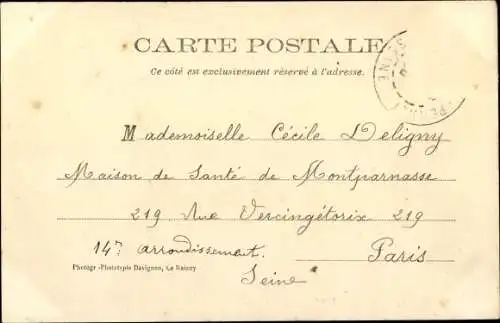 CARTE POSTALE
Ce côté est exclusivement réservé à l'adresse.
SEINE
Mademoiselle Cécile Deligny
Maison de Santé de Montparnasse
219 Rue Vercingétorix 219
14e arrondissement. Paris
Photogr-Phototypie Davignon, Le Rainey
Seine